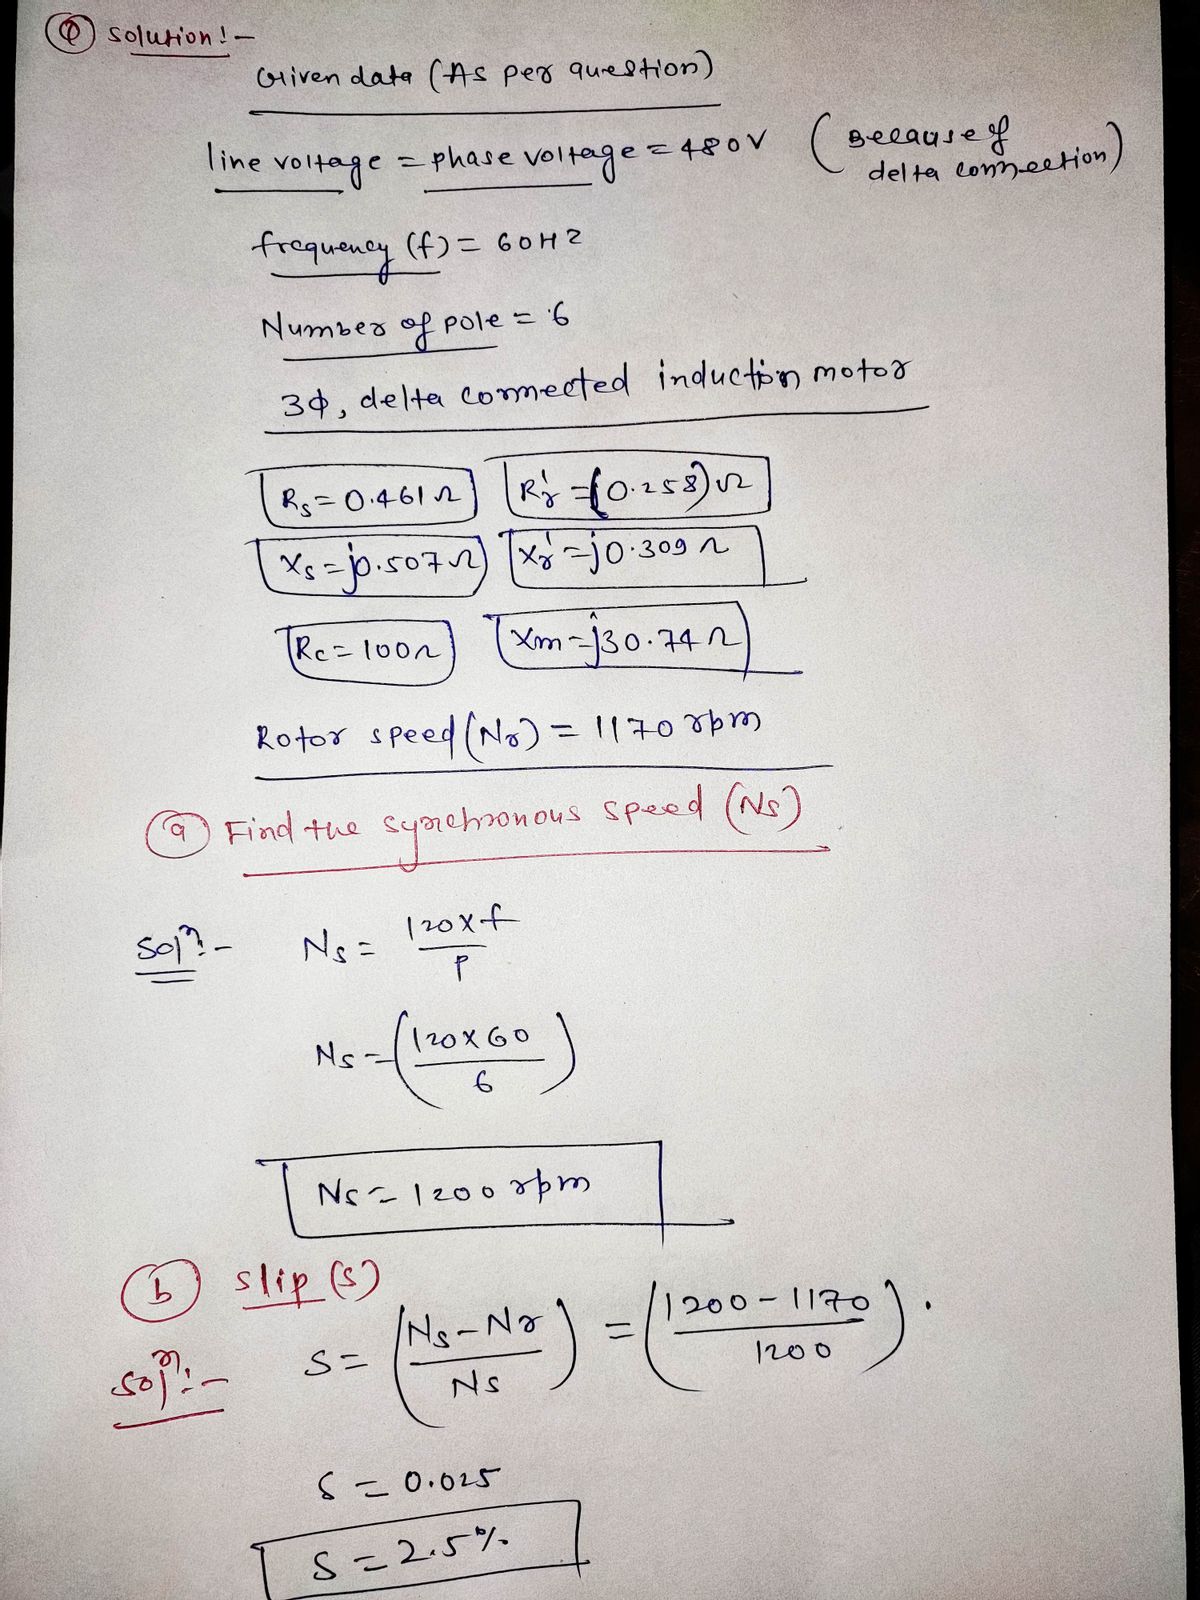 Q Solution!-
Given data (As per question)
line voltage = phase voltage = 480V (Because of delta connection)
frequency (f) = 60HZ
Number of pole = 6
3ϕ, delta connected induction motor
Rs = 0.461Ω Rr' = (0.258)Ω
Xs = j0.507Ω Xr' = j0.309Ω
Rc = 100Ω Xm = j30.74Ω
Rotor speed (Nr) = 1170 rpm
a Find the synchronous speed (Ns)
Solⁿ:- Ns = 120×f / P
Ns = (120×60 / 6)
Ns = 1200 rpm
b slip (s)
Solⁿ:- S = (Ns-Nr / Ns) = (1200-1170 / 1200).
S = 0.025
S = 2.5%